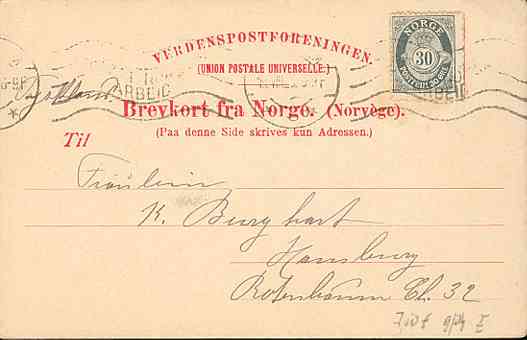 VERDENSPOSTFORENINGEN.
(UNION POSTALE UNIVERSELLE.)
NORGE
30
POSTFRIM. 30 ØRE
ARBEID
ARBEID
Tyskland
Brevkort fra Norge. (Norvège).
(Paa denne Side skrives kun Adressen.)
Til
Fräulein
K. Burghart
Hamburg
Rotenbaum Ch. 32